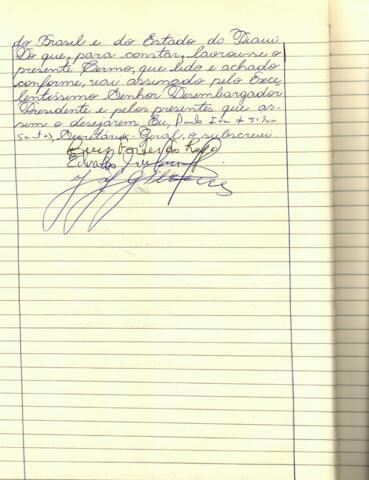 do Brasil e do Estado do Piauí.
Do que, para constar, lavrou-se o
presente Termo, que lido e achado
conforme, vai assinado pelo Exce
lentíssimo Senhor Desembargador
Presidente e pelos presentes que as-
sim o desejarem. Eu, Paulo Ivan da Silva
Santos, Secretário-Geral, o subscrevi.
Edvaldo